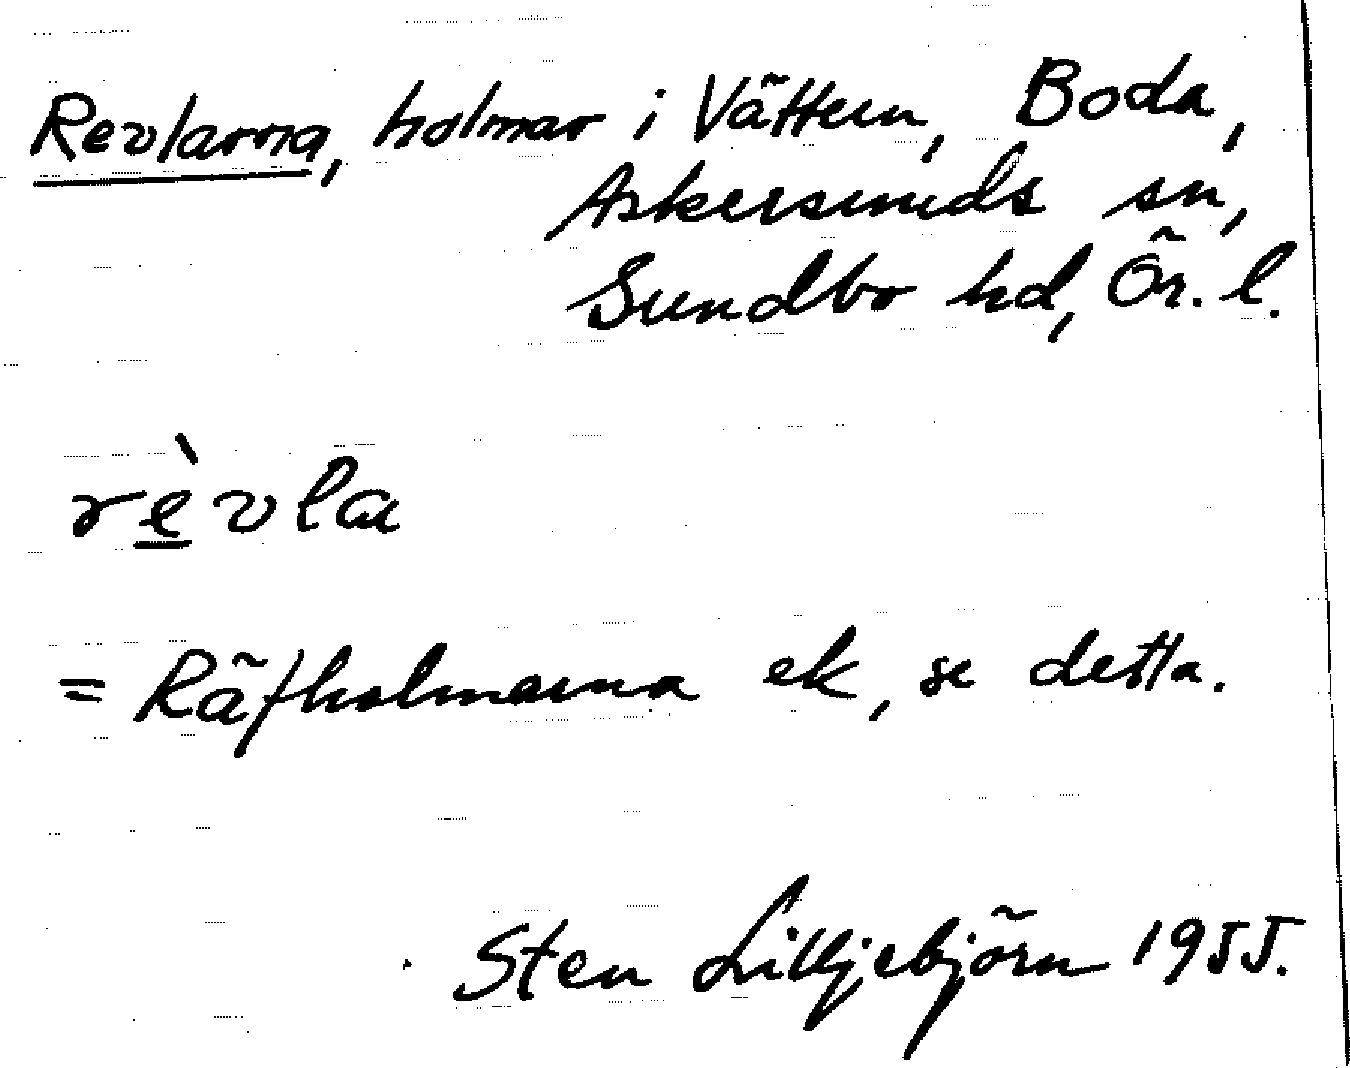 Revlarna, holmar i Vättern, Boda,
Askersunds sn,
Sundbo hd, Ör. l.
rèvla
= Räfholmarna ek, se detta.
Sten Lilljebjörn 1955.